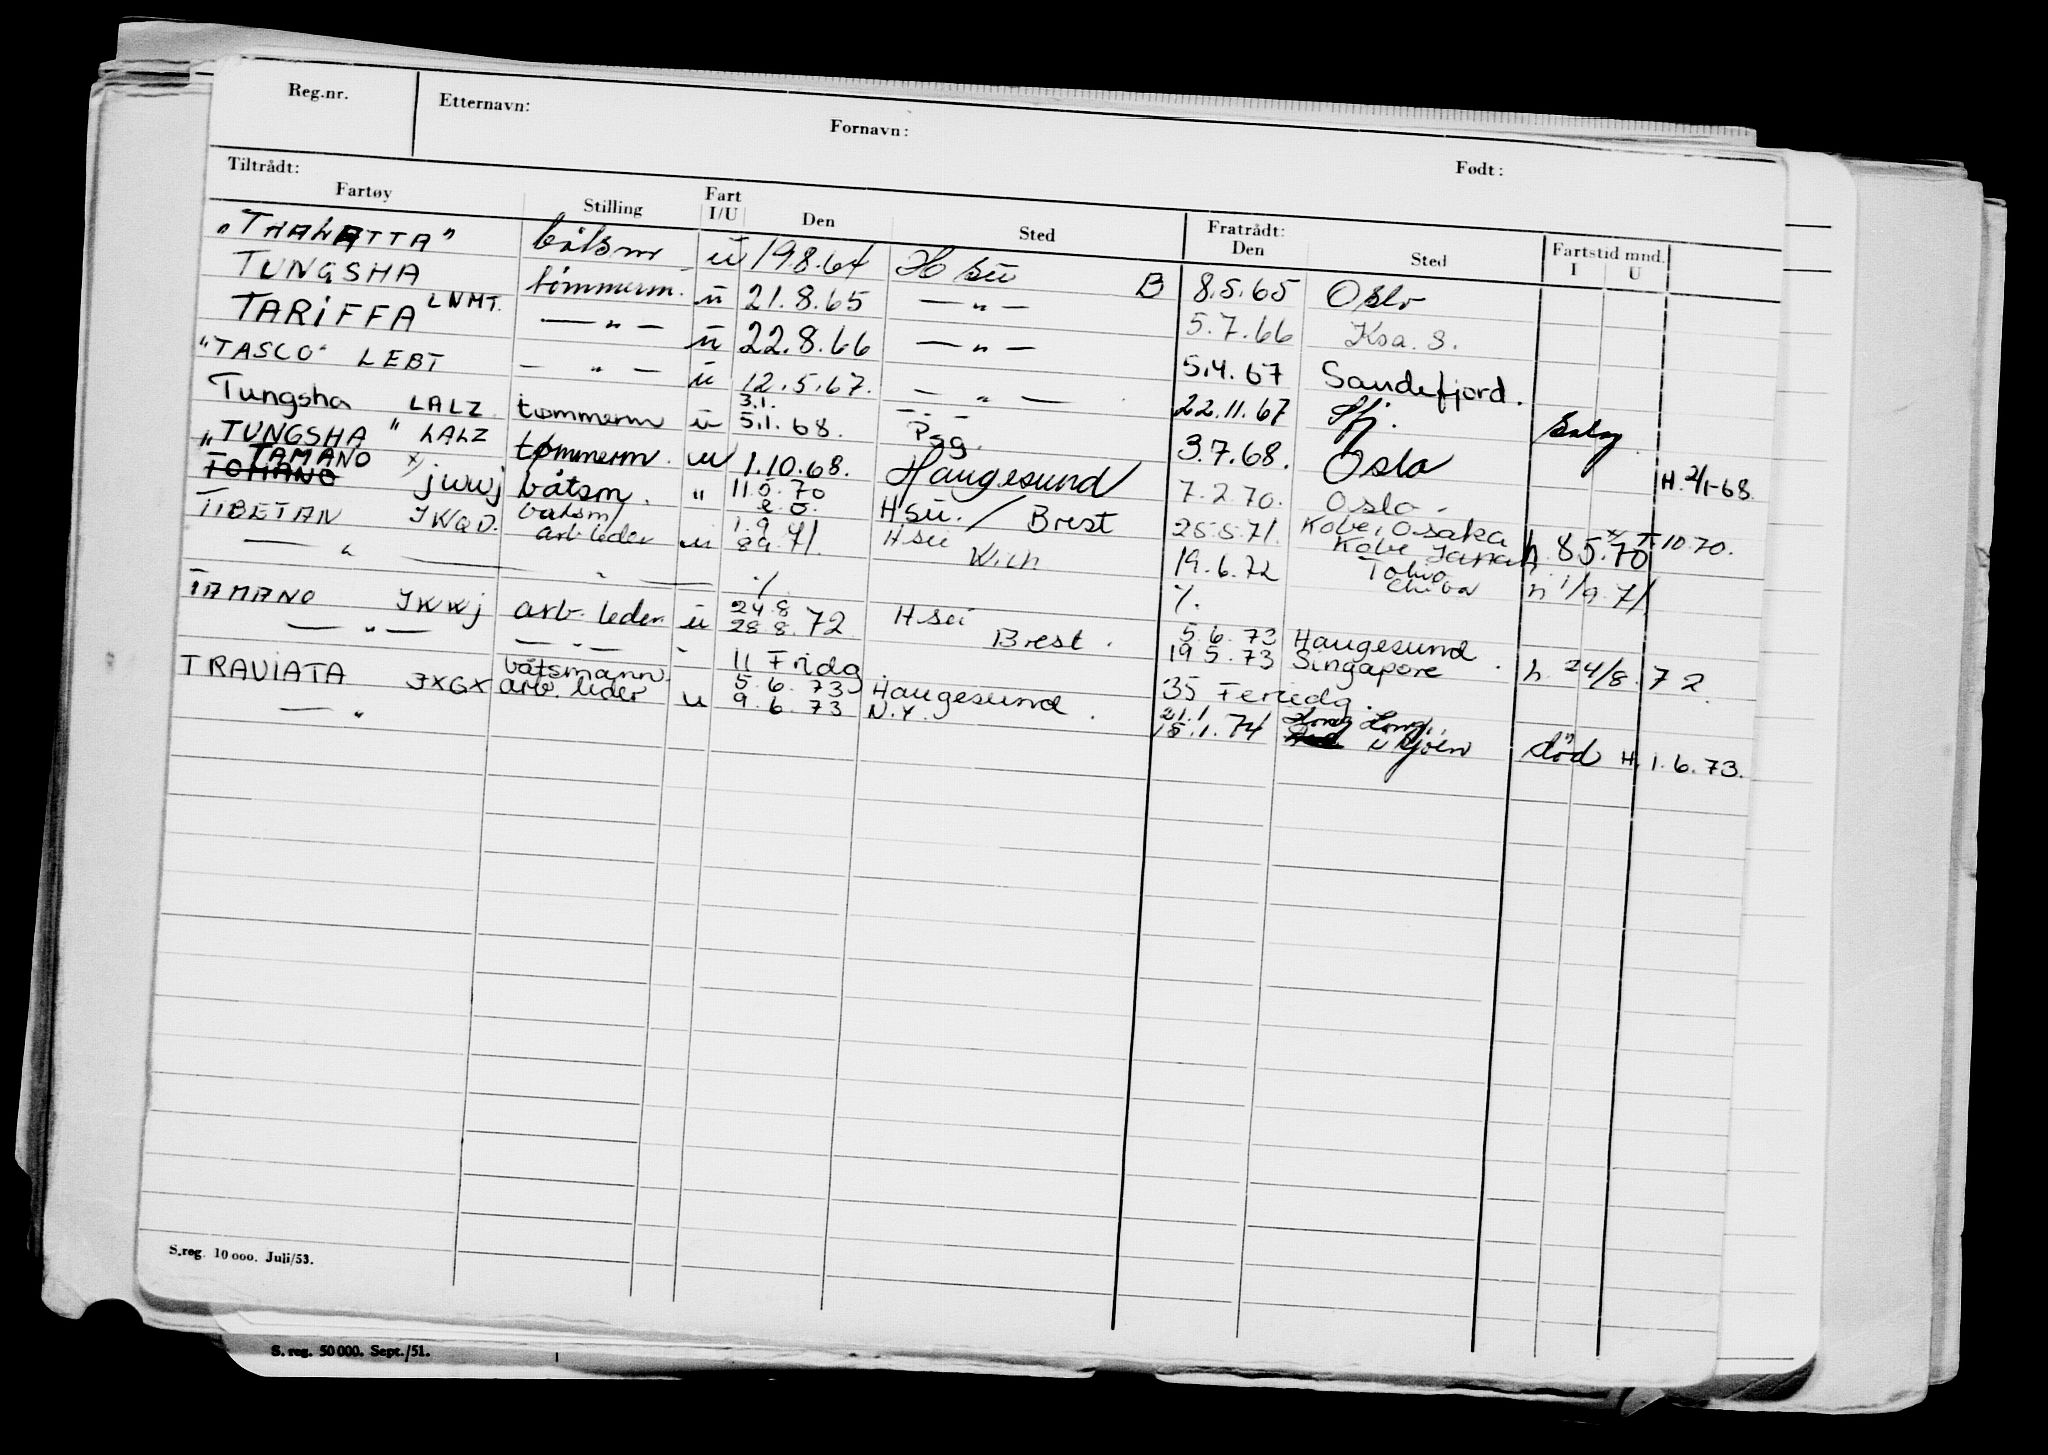 Reg.nr. Etternavn: Fornavn: Født:
Tiltrådt: Fratrådt: Fartstid mnd.
Fartøy Stilling Fart I/U Den Sted Den Sted I U
"THALATTA" båtsm u 19.8.64 H su B 8.5.65 Oslo
TUNGSHA tømmerm. u 21.8.65 — " — 5.7.66 Ksa. S.
TARIFFA LNMT. — " — u 22.8.66 — " — 5.4.67 Sandefjord.
"TASCO" LEBT — " — u 12.5.67. — " — 22.11.67 Sfj.
Tungsha LALZ tømmerm u 3.1. 5.1.68. Psg. 3.7.68. Oslo H. 2/1-68.
"TUNGSHA" LALZ tømmerm. u 1.10.68. Haugesund 7.2.70. Oslo.
TAMANO x) jwwj båtsm. " 11.5.70 Hsu. / Brest 25.5.71. Kobe, Osaka h. 8.5.70 x) 7.10.70.
TOMANO
TIBETAN JWQD. båtsm/ arb leder u 1.9. 8.9.71. Hsu Wich 19.6.72 Chiba h 1/9.71
— " — " — %. %.
TAMANO JWWj arb. leder u 24.8 28.8.72 Hsu Brest. 5.6.73 Haugesund
— " — — " — " 11 Fridg. 19.5.73 Singapore. h. 24/8.72.
TRAVIATA JXGX båtsmann 5.6.73 Haugesund. 35 Feriedg.
— " arb. leder u 9.6.73 N.Y. 21.1 18.1.74 Hong Kong. død H. 1.6.73.
S.reg. 10 000. Juli/53.
S. reg. 50 000. Sept./51.